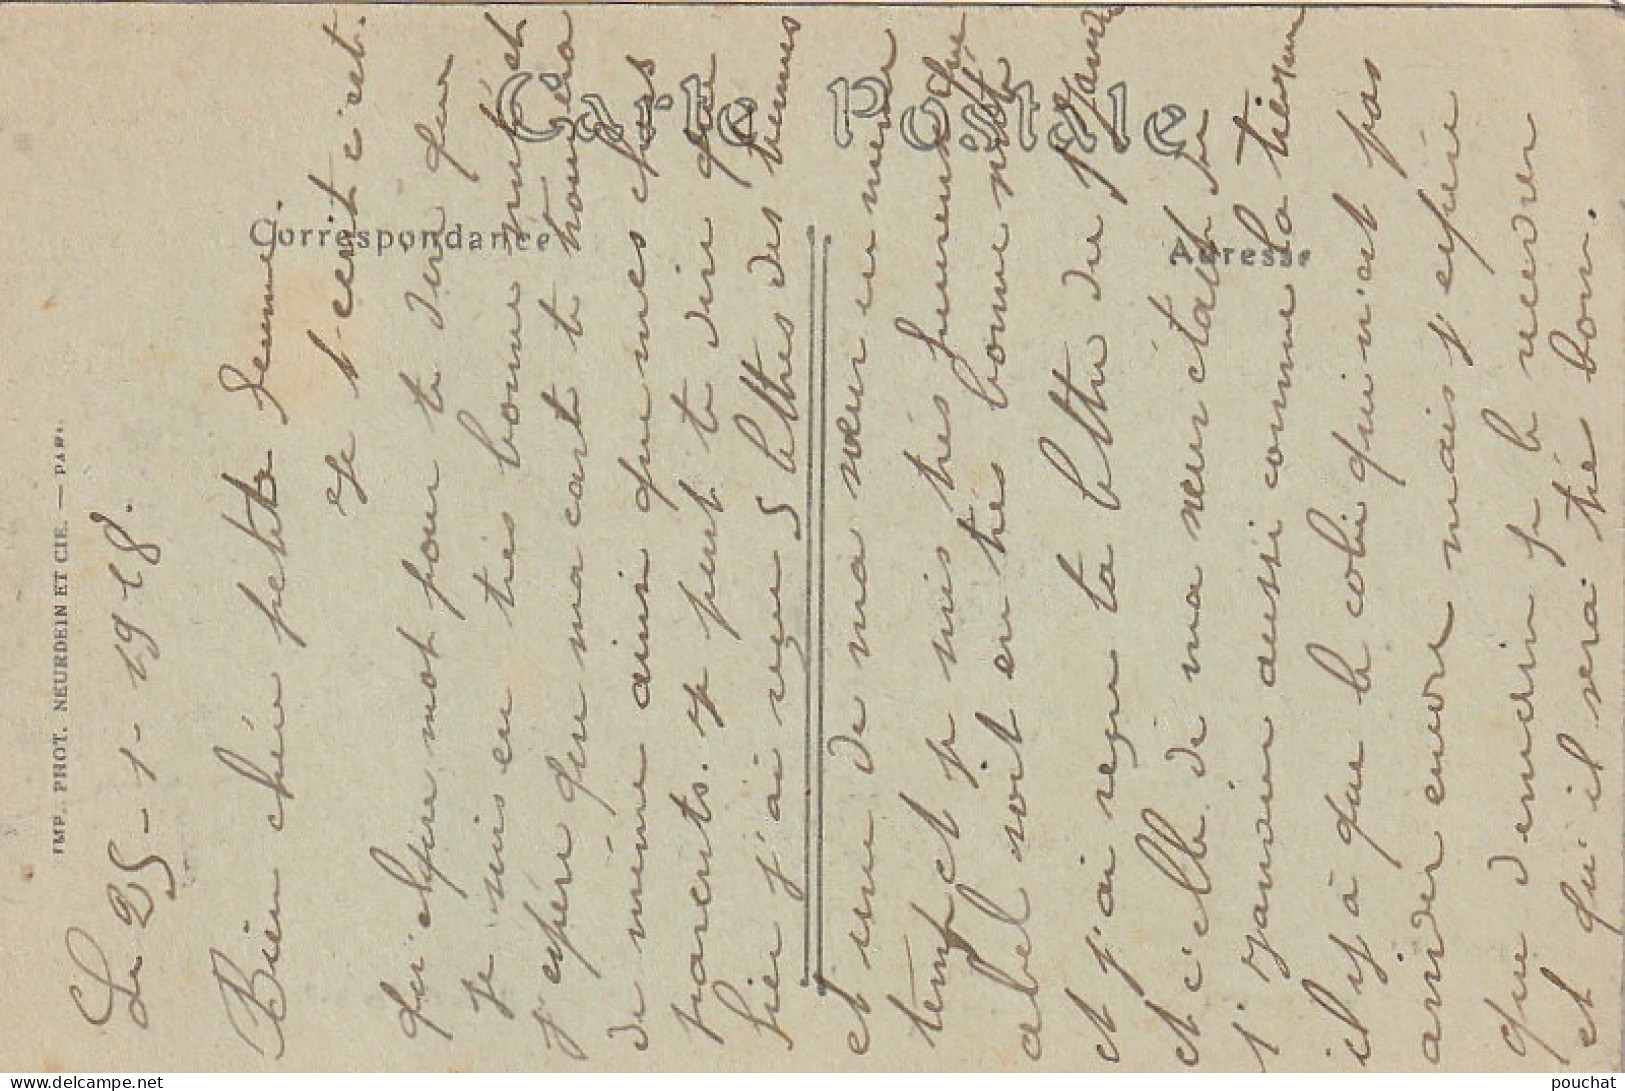 Carte Postale
Correspondance
Adresse
IMP. PHOT. NEURDEIN ET CIE. — PARIS
Le 25-1-1918.
Bien chér petite femme.
Je t'ecrit c'est
qu'elque mot pour te dire que
Je suis en très bonne santé et
j'espère que ma carte te trouvera
de même ainsi que mes chers
parents. Je peut te dire que
hier j'ai reçu 5 lettres des tiennes
et une de ma sœur en même
temp et je suis très heureuse que
abel soit en très bonne santé
et j'ai reçu ta lettre du 17 Janvier
et c'elle de ma sœur était du
17 Janvier aussi comme la tienne
il y à que le coli qui n'est pas
arriver encore mais j'espère
que demain je le recevrer
et qu'il sera tré bon.
delcampe.net
pouchat